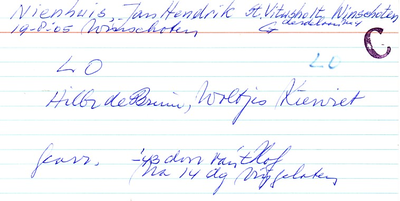 Nienhuis, Jan Hendrik St. Vitusholt, Winschoten
19-8-05 Winschoten G
C
LO LO
Hilbr de Bruin, Woltjes, Kiewiet
gearr. -'43 door van 't Hof
na 14 dg vrijgelaten